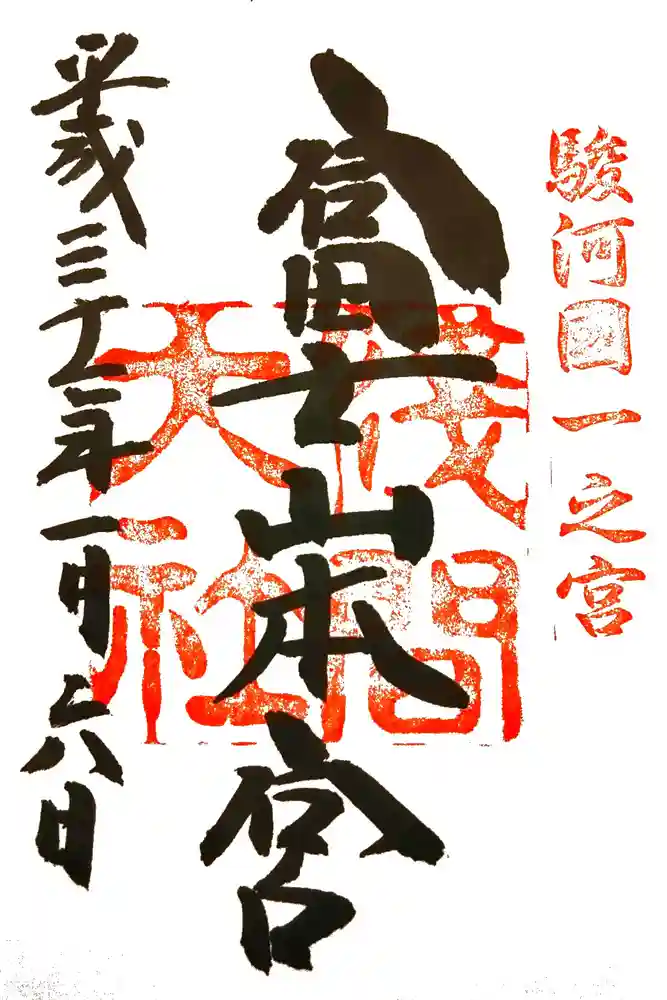 駿河國一之宮
富士山本宮
淺間
大社
平成三十一年一月六日